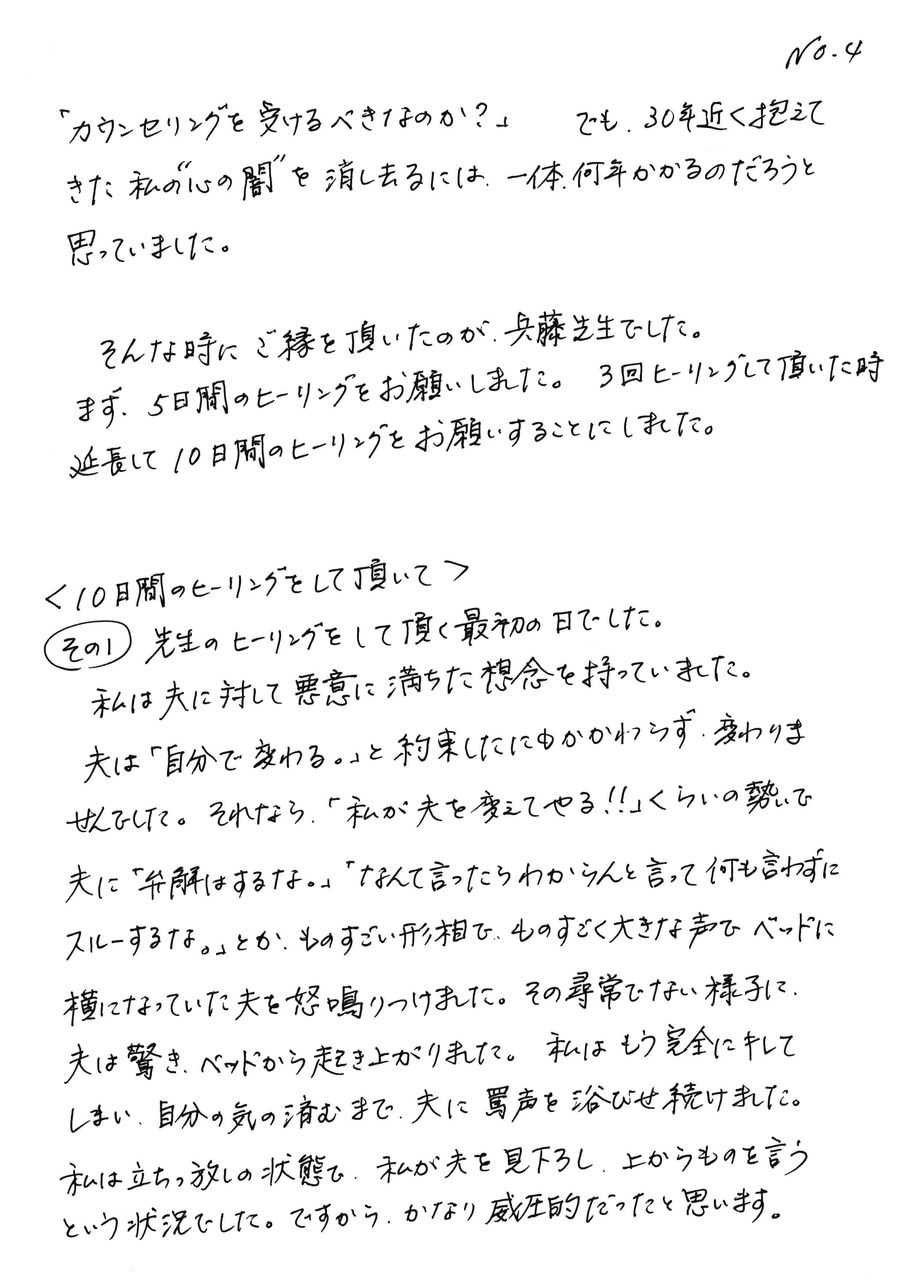 No.4
「カウンセリングを受けるべきなのか?」 でも、30年近く抱えて
きた私の"心の闇"を消し去るには、一体、何年かかるのだろうと
思っていました。
そんな時にご縁を頂いたのが、兵藤先生でした。
まず、5日間のヒーリングをお願いしました。 3回ヒーリングして頂いた時
延長して10日間のヒーリングをお願いすることにしました。
<10日間のヒーリングをして頂いて>
その1 先生のヒーリングをして頂く最初の日でした。
私は夫に対して悪意に満ちた想念を持っていました。
夫は「自分で変わる。」と約束したにもかかわらず、変わりま
せんでした。それなら、「私が夫を変えてやる!!」くらいの勢いで
夫に「弁解はするな。」「なんて言ったらわからんと言って何も言わずに
スルーするな。」とか、ものすごい形相で、ものすごく大きな声でベッドに
横になっていた夫を怒鳴りつけました。その尋常でない様子に、
夫は驚き、ベッドから起き上がりました。 私はもう完全にキレて
しまい、自分の気の済むまで、夫に罵声を浴びせ続けました。
私は立ちっ放しの状態で、私が夫を見下ろし、上からものを言う
という状況でした。ですから、かなり威圧的だったと思います。